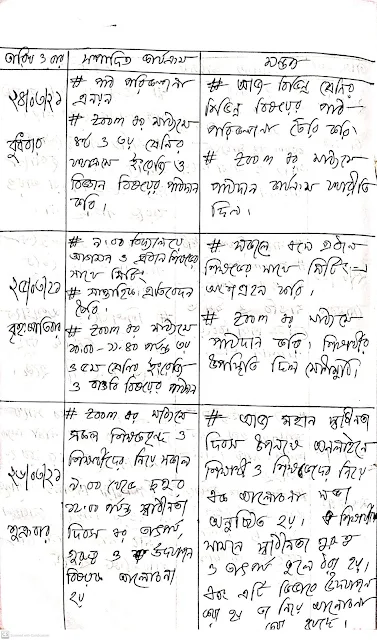 তারিখ ও বার
সম্পাদিত কার্যক্রম
মন্তব্য
২৪/০৩/২১
বুধবার
# পাঠ পরিকল্পনা
প্রনয়ন
# ZOOM এর মাধ্যমে
৪র্থ ও ৩য় শ্রেনির
যথাক্রমে ইংরেজি ও
বিজ্ঞান বিষয়ের পাঠদান
করি।
# আজ বিভিন্ন শ্রেনির
বিভিন্ন বিষয়ের পাঠ
পরিকল্পনা তৈরি করি।
# ZOOM এর মাধ্যমে
পাঠদান কার্যক্রম যথারীতি
ছিল।
২৫/০৩/২১
বৃহস্পতিবার
# ৯.০০ বিদ্যালয়ে
আগমন ও প্রধান শিক্ষকের
সাথে মিটিং
# সাপ্তাহিক প্রতিবেদন
তৈরি।
# ZOOM এর মাধ্যমে
পর্যন্ত ৩য়
ও ৫ম শ্রেনির ইংরেজি
ও বিষয়ের পাঠদান
# সকালে প্রধান
শিক্ষকের সাথে মিটিং-এ
অংশগ্রহন করি।
# ZOOM এর মাধ্যমে
পাঠদান করি। শিক্ষার্থীর
উপস্থিতি ছিল মোটামুটি।
২৬/০৩/২১
শুক্রবার
# ZOOM এর মাধ্যমে
সকল শিক্ষকবৃন্দ ও
শিক্ষার্থীদের নিয়ে সকাল
থেকে দুপুর
১২.০০ পর্যন্ত স্বাধীনতা
দিবস এর তাৎপর্য,
গুরুত্ব ও উদযাপন
বিষয়ক আলোচনা
হয়
# আজ মহান স্বাধীনতা
দিবস উপলক্ষে অনলাইনে
শিক্ষার্থী ও শিক্ষকদের নিয়ে
এক আলোচনা সভা
অনুষ্ঠিত হয়। শিক্ষার্থীদের
সামনে স্বাধীনতার গুরুত্ব
ও তাৎপর্য তুলে ধরা হয়।
এবং এটি কিভাবে উদযাপন
করা হয় তা নিয়ে আলোচনা
করা হয়েছে।